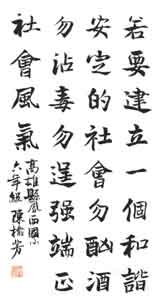 若要建立一個和諧
安定的社會勿酗酒
勿沾毒勿逞强端正
社會風氣
高雄縣鳳西國小
六年級 陳